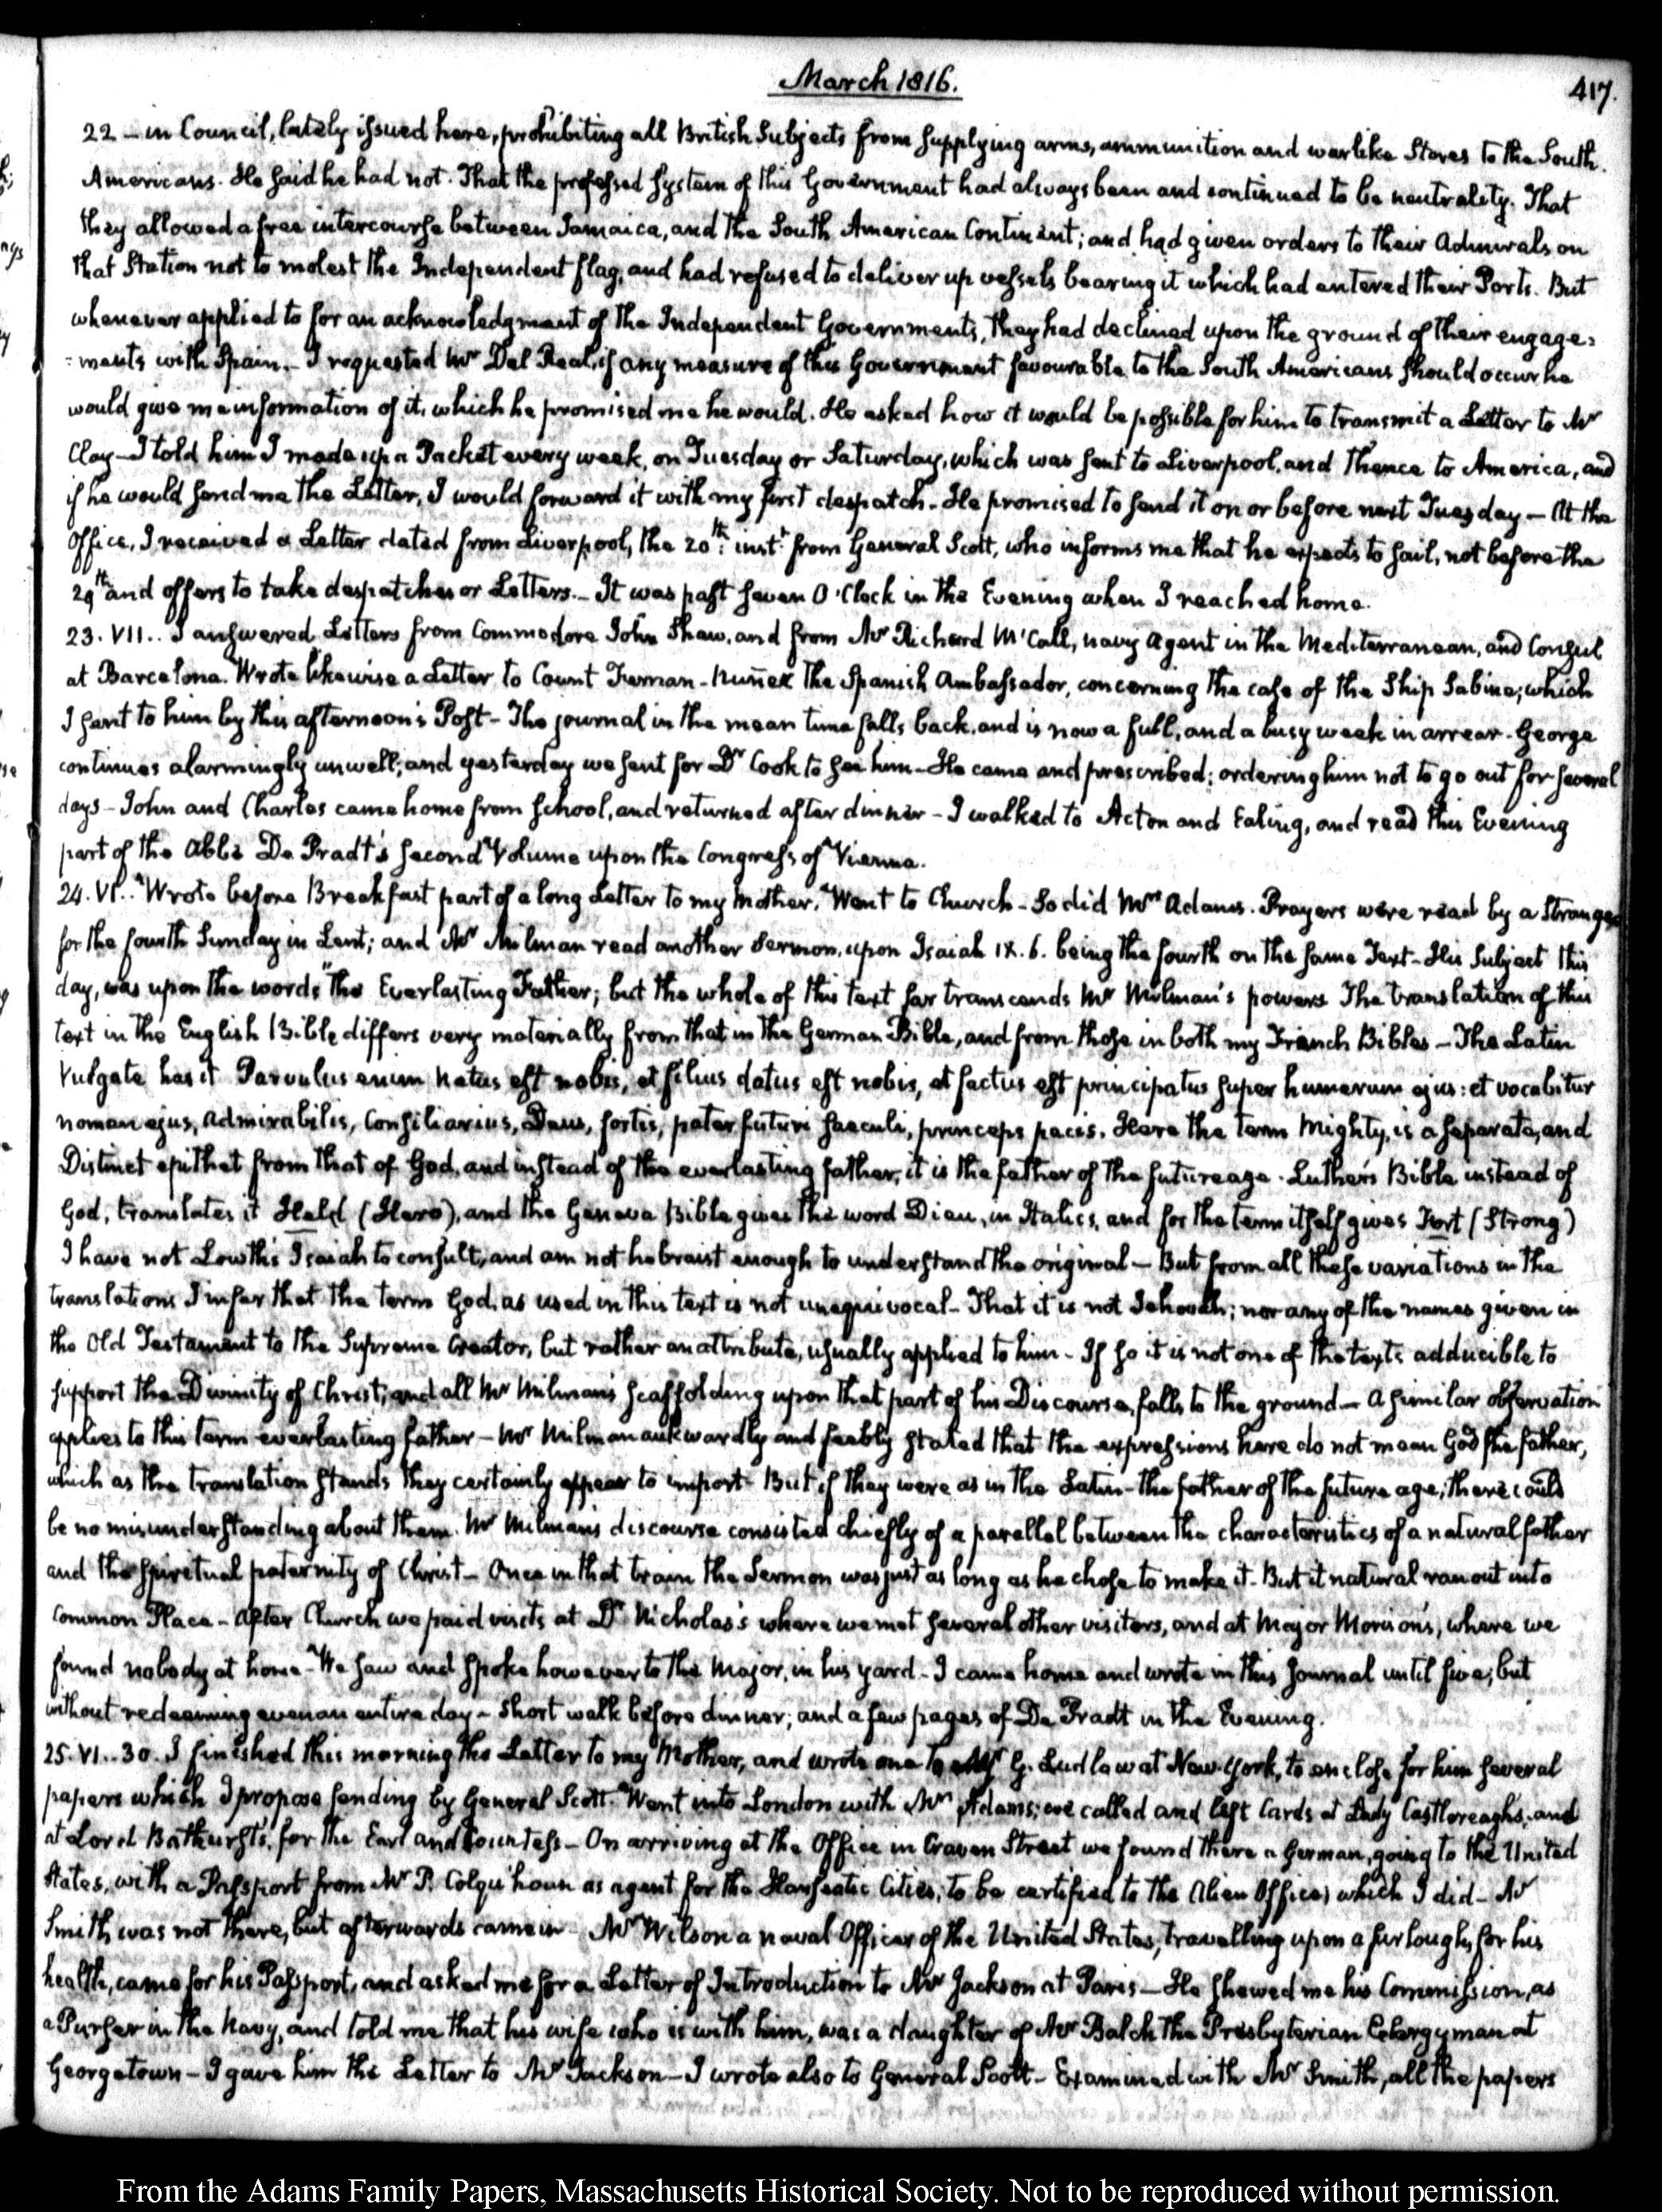 March 1816.
417.
22 – in Council, lately issued here, prohibiting all British Subjects from supplying arms, ammunition and warlike Stores to the South.
Americans. He said he had not. That the professed system of this Government had always been and continued to be neutrality. That
they allowed a free intercourse between Jamaica, and the South American Continent; and had given orders to their Admirals on
that Station not to molest the Independent flag, and had refused to deliver up vessels bearing it which had entered their Ports. But
whenever applied to for an acknowledgment of the Independent Governments, they had declined upon the ground of their engage=
=ments with Spain. – I requested Mr Del Real, if any measure of this Government favourable to the South Americans should occur he
would give me information of it, which he promised me he would. He asked how it would be possible for him to transmit a Letter to Mr
Clay – I told him I made up a Packet every week, on Tuesday or Saturday, which was sent to Liverpool, and thence to America, and
if he would send me the Letter, I would forward it with my first despatch. He promised to send it on or before next Tuesday – At the
Office, I received a Letter dated from Liverpool, the 20th: inst: from General Scott, who informs me that he expects to sail, not before the
29th and offers to take despatches or Letters. – It was past seven O'Clock in the Evening when I reached home.
23. VII.. I answered Letters from Commodore John Shaw, and from Mr Richard M'Call, navy Agent in the Mediterranean, and Consul
at Barcelona. Wrote likewise a Letter to Count Fernan-Nuñez the Spanish Ambassador, concerning the case of the Ship Sabine; which
I sent to him by this afternoon's Post – The journal in the mean time falls back, and is now a full, and a busy week in arrear. George
continues alarmingly unwell; and yesterday we sent for Dr Cook to see him – He came and prescribed; ordering him not to go out for several
days – John and Charles came home from school, and returned after dinner – I walked to Acton and Ealing, and read this Evening
part of the Abbé De Pradt's second Volume upon the Congress of Vienna.
24. VI.. Wrote before Breakfast part of a long Letter to my Mother. Went to Church – So did Mrs Adams. Prayers were read by a Stranger
for the fourth Sunday in Lent; and Mr Milman read another Sermon, upon Isaiah IX. 6. being the fourth on the same Text – His Subject this
day, was upon the words "the Everlasting Father; but the whole of this text far transcends Mr Milman's powers The translation of this
text in the English Bible differs very materially from that in the German Bible, and from those in both my French Bibles – The Latin
Vulgate has it Parvulus enim natus est nobis, et filius datus est nobis, et factus est principatus super humerum ejus: et vocabitur
nomen ejus, Admirabilis, Consiliarius, Deus, fortis, pater futuri saeculi, princeps pacis. Here the term Mighty, is a separate, and
Distinct epithet from that of God, and instead of the everlasting father, it is the father of the future age. Luther's Bible instead of
God, translates it Held (Hero), and the Geneva Bible gives the word Dieu, in Italics, and for the term itself gives Fort (Strong)
I have not Lowth's Isaiah to consult, and am not hebraist enough to understand the original – But from all these variations in the
translations I infer that the term God, as used in this text is not unequivocal – That it is not Jehovah; nor any of the names given in
the Old Testament to the Supreme Creator, but rather an attribute, usually applied to him – If so it is not one of the texts adducible to
support the Divinity of Christ; and all Mr Milman's scaffolding upon that part of his Discourse, falls to the ground – A similar observation
applies to this term everlasting father – Mr Milman aukwardly and feebly stated that the expressions here do not mean God the father,
which as the translation stands they certainly appear to import – But if they were as in the Latin – the father of the future age, there could
be no misunderstanding about them. Mr Milman's discourse consisted chiefly of a parallel between the characteristics of a natural father
and the spiritual paternity of Christ – Once in that train the Sermon was just as long as he chose to make it. But it natural ran out into
Common Place – After Church we paid visits at Dr Nicholas's where we met several other visitors, and at Major Morison's, where we
found nobody at home – We saw and spoke however to the Major, in his yard – I came home and wrote in this Journal until five; but
without redeeming even an entire day – Short walk before dinner; and a few pages of De Pradt in the Evening.
25. VI..30. I finished this morning the Letter to my Mother, and wrote one to Mr G. Ludlow at New-York, to enclose for him several
papers which I propose sending by General Scott. Went into London with Mrs Adams; we called and left Cards at Lady Castlereagh's, and
at Lord Bathurst's, for the Earl and Countess – On arriving at the Office in Craven Street we found there a German, going to the United
States, with a Passport from Mr P. Colquhoun as agent for the Hanseatic Cities, to be certified to the Alien Office; which I did – Mr
Smith was not there, but afterwards came in – Mr Wilson a naval Officer of the United States, travelling upon a furlough, for his
health, came for his Passport, and asked me for a Letter of Introduction to Mr Jackson at Paris – He shewed me his Commission, as
a Purser in the Navy, and told me that his wife who is with him, was a daughter of Mr Balch the Presbyterian Clergyman at
Georgetown – I gave him the Letter to Mr Jackson – I wrote also to General Scott – Examined with Mr Smith, all the papers
From the Adams Family Papers, Massachusetts Historical Society. Not to be reproduced without permission.